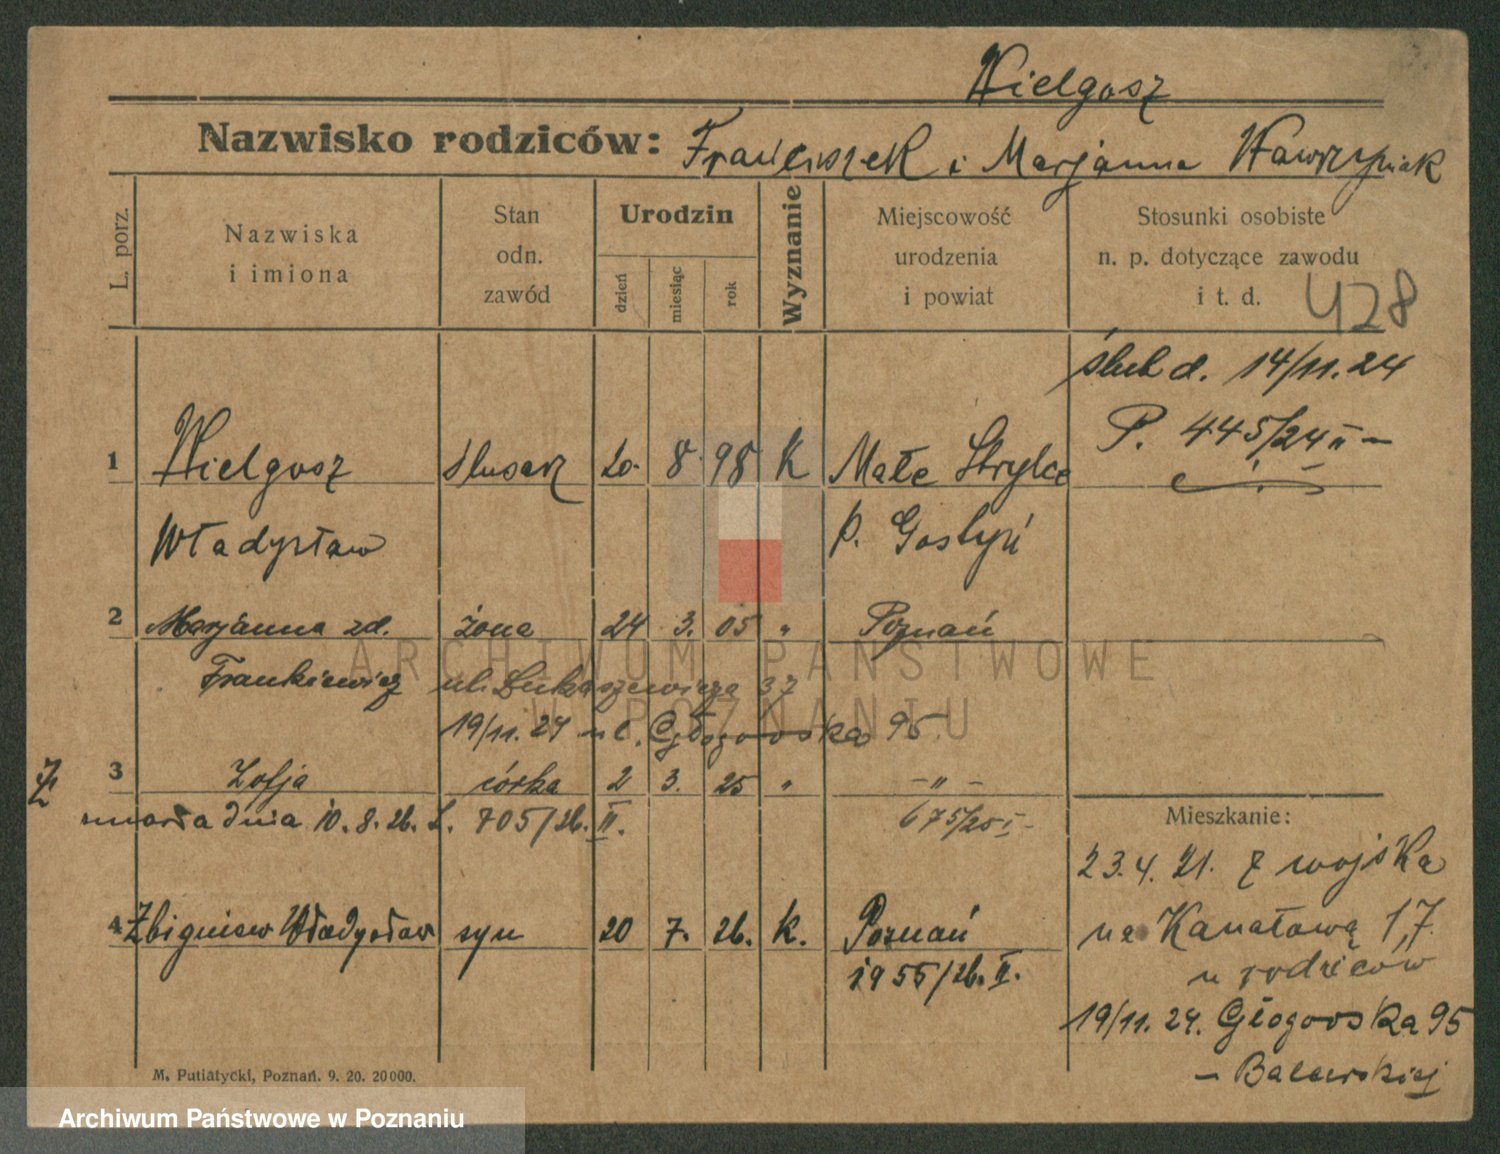 Wielgosz
Nazwisko rodziców: Franciszek i Marjanna Wawrzyniak
L. porz.
Nazwiska
i imiona
Stan
odn.
zawód
Urodzin
dzień
miesiąc
rok
Wyznanie
Miejscowość
urodzenia
i powiat
Stosunki osobiste
n. p. dotyczące zawodu
i t. d.
428
ślub d. 14/11.24
P. 445/24 II
1 Wielgosz ślusarz 20. 8. 98 K Małe
Władysław p. Gostyń
2 Marjanna zd. żona 24 3. 05 " Poznań
Frankiewicz ul. Łukaszewicza 37
19/11. 24 ul. Głogowska 95
3 Zofja córka 2 3. 25 " - " -
Zmarła dnia 10. 8. 26. L. 705/26. II. 675/25 I
Mieszkanie:
23. 4. 21. z wojska
na Kanałową 17.
u rodziców
19/11. 24. Głogowska 95
4 Zbigniew Władysław syn 20 7. 26. K. Poznań
1955/26. II.
M. Putiatycki, Poznań. 9. 20. 20000.
ARCHIWUM PAŃSTWOWE
W POZNANIU
Archiwum Państwowe w Poznaniu